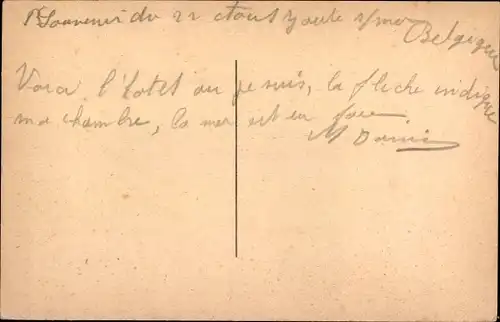 Souvenir du 22 Aout Zoute s/mer Belgique
Voici l'hotel ou je suis, la fleche indique
ma chambre, la mer est en face
M